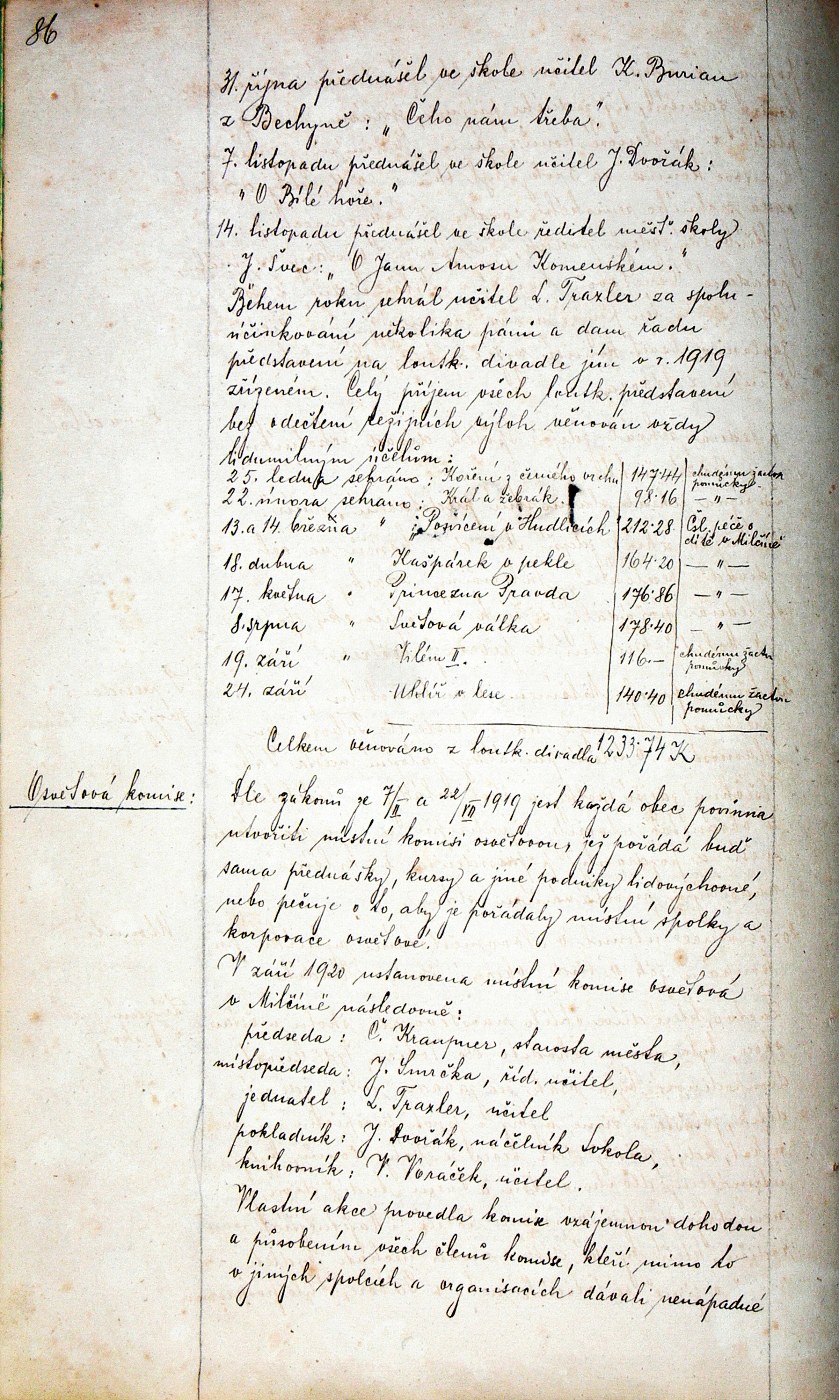 86
31. října přednášel ve škole učitel K. Burian
z Bechyně : „Čeho nám třeba".
7. listopadu přednášel ve škole učitel J. Dvořák :
"O Bílé hoře."
14. listopadu přednášel ve škole ředitel měšť. školy
J. Švec : „O Janu Amosu Komenském."
Během roku sehrál učitel L. Traxler za spolu-
účinkování několika pánů a dam řadu
představení na loutk. divadle jím v r. 1919
zřízeném. Celý příjem všech loutk. představení
bez odečtení režijních výloh věnován vždy
lidumilným účelům :
25. ledna sehráno : Koření z černého vrchu 147·44 chudému žactvu pomůcky
22. února sehráno : Král a žebrák. 98·16 — „ —
13. a 14. března " : „Posvícení v Hudlicích" 212·28 Čsl. péče o dítě v Milčíně
18. dubna " Kašpárek v pekle 164·20 — „ —
17. května " Princezna Pravda 176·86 — „ —
8. srpna " Světová válka 178·40 — „ —
19. září " Vilém II. 116.— chudému žactvu pomůcky
24. září Uhlíř v lese 140·40 chudému žactvu pomůcky
Celkem věnováno z loutk. divadla 1233·74 K
Osvětová komise:
Dle zákonů ze 7/II a 22/VII 1919 jest každá obec povinna
utvořiti místní komisi osvětovou, jež pořádá buď
sama přednášky, kursy a jiné podniky lidovýchovné,
nebo pečuje o to, aby je pořádaly místní spolky a
korporace osvětové.
V září 1920 ustanovena místní komise osvětová
v Milčíně následovně :
předseda : Č. Kraupner, starosta města,
místopředseda : J. Smrčka, říd. učitel,
jednatel : L. Traxler, učitel
pokladník : J. Dvořák, náčelník Sokola,
knihovník : V. Voráček, učitel.
Vlastní akce provedla komise vzájemnou dohodou
a působením všech členů komise, kteří mimo to
v jiných spolcích a organisacích dávali nenápadné